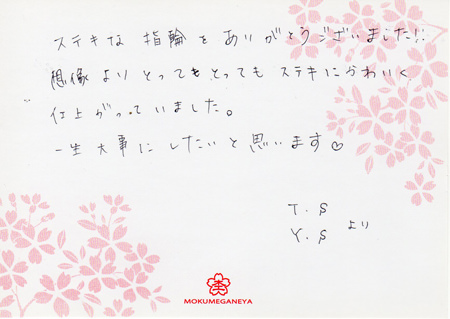 ステキな指輪をありがとうございました!!
想像よりとってもとってもステキにかわいく
仕上がっていました。
一生大事にしたいと思います♡
T.S
Y.S より
MOKUMEGANEYA